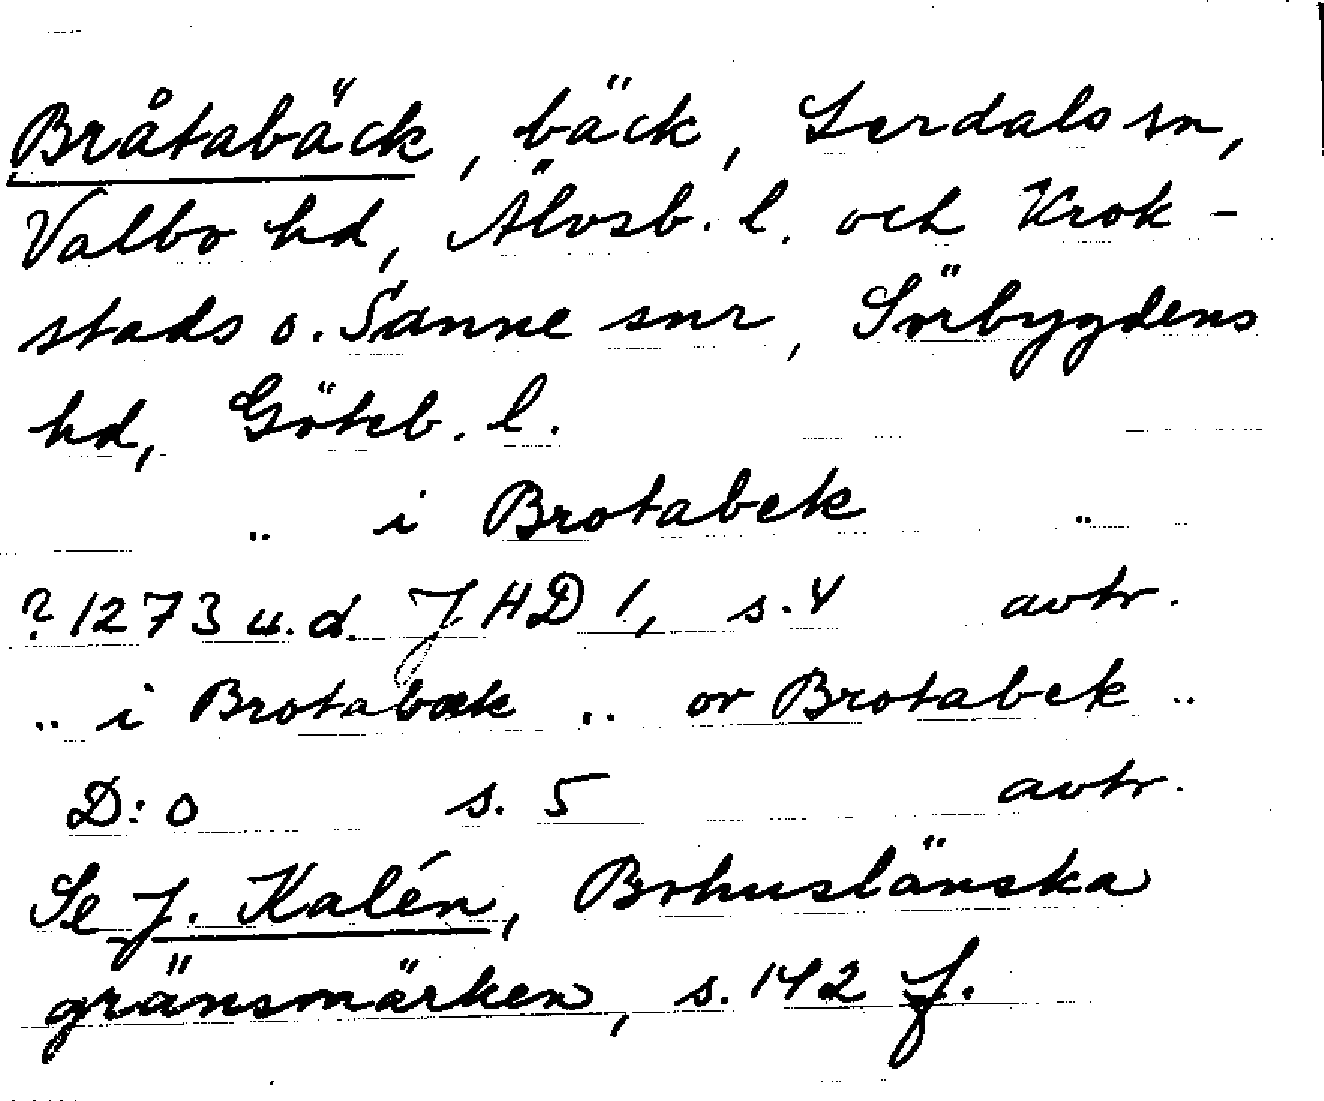 Bråtabäck, bäck, Lerdals sn,
Valbo hd, Älvsb. l. och Krok-
stads o. Sanne snr, Sörbygdens
hd, Göteb. l.
.. i Brotabek ..
? 1273 u.d. JHD 1, s. 4 avtr.
.. i Brotabæk .. or Brotabek ..
D:o s. 5 avtr.
Se J. Kalén, Bohuslänska
gränsmärken, s. 142 f.